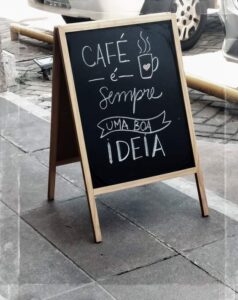 CAFÉ
é
sempre
UMA BOA
IDEIA